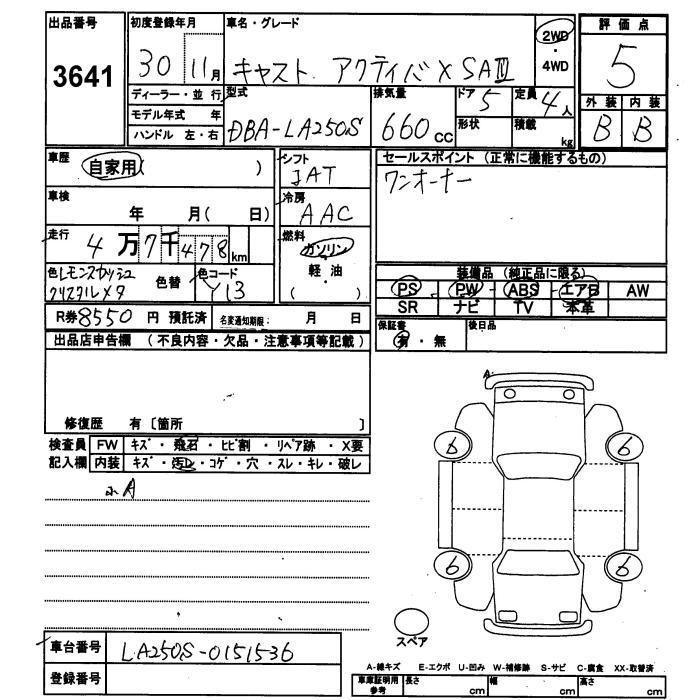 出品番号 3641
初度登録年月 30 11月
車名・グレード キャスト アクティバ X SAⅢ
2WD ・ 4WD
評価点 5
外装 内装
B B
ディーラー・並行
モデル年式 年
ハンドル 左・右
型式 DBA-LA250S
排気量 660 cc
ドア 5
形状
定員 4人
積載 kg
車歴 自家用( )
車検 年 月( 日)
走行 4万7千478km
色 レモンスカッシュ
クリスタルメタ
色替
色コード Y13
シフト IAT
冷房 AAC
燃料 ガソリン
軽・油
( )
セールスポイント (正常に機能するもの)
ワンオーナー
装備品 (純正品に限る)
PS・PW・ABS・エアB AW
SR ナビ TV 本革
保証書 有・無
後日品
R券 8550 円 預託済 名変通知期限: 月 日
出品店申告欄 (不良内容・欠品・注意事項等記載)
修復歴 有〔箇所 〕
検査員 FW キズ・飛石・ヒビ割・リペア跡・X要
記入欄 内装 キズ・汚レ・コゲ・穴・スレ・キレ・破レ
小A
A
6 6
6 6
スペア
車台番号 LA250S-0151536
登録番号
A-線キズ E-エクボ U-凹み W-補修跡 S-サビ C-腐食 XX-取替済
車庫証明用参考 長さ cm 幅 cm 高さ cm